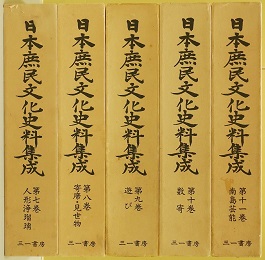 日本庶民文化史料集成
第七巻
人形浄瑠璃
三一書房
日本庶民文化史料集成
第八巻
寄席・見世物
三一書房
日本庶民文化史料集成
第九巻
遊び
三一書房
日本庶民文化史料集成
第十巻
数寄
三一書房
日本庶民文化史料集成
第十一巻
南島芸能
三一書房